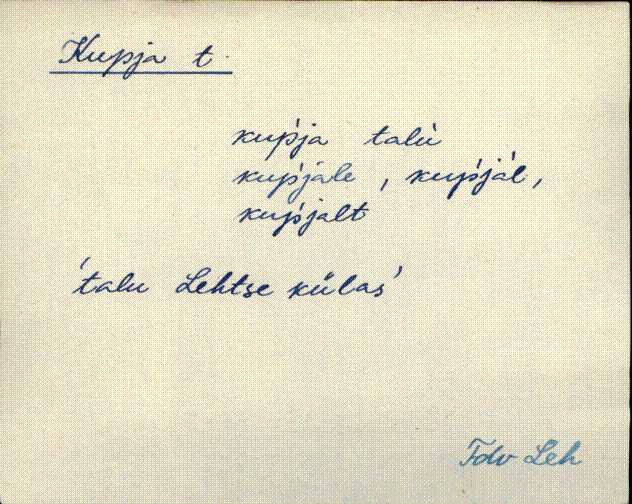 Kupja t.
kup̀ja talù
kup̀jale, kup̀jàl,
kup̀jalt
'talu Lehtse külas'
Tdv Leh